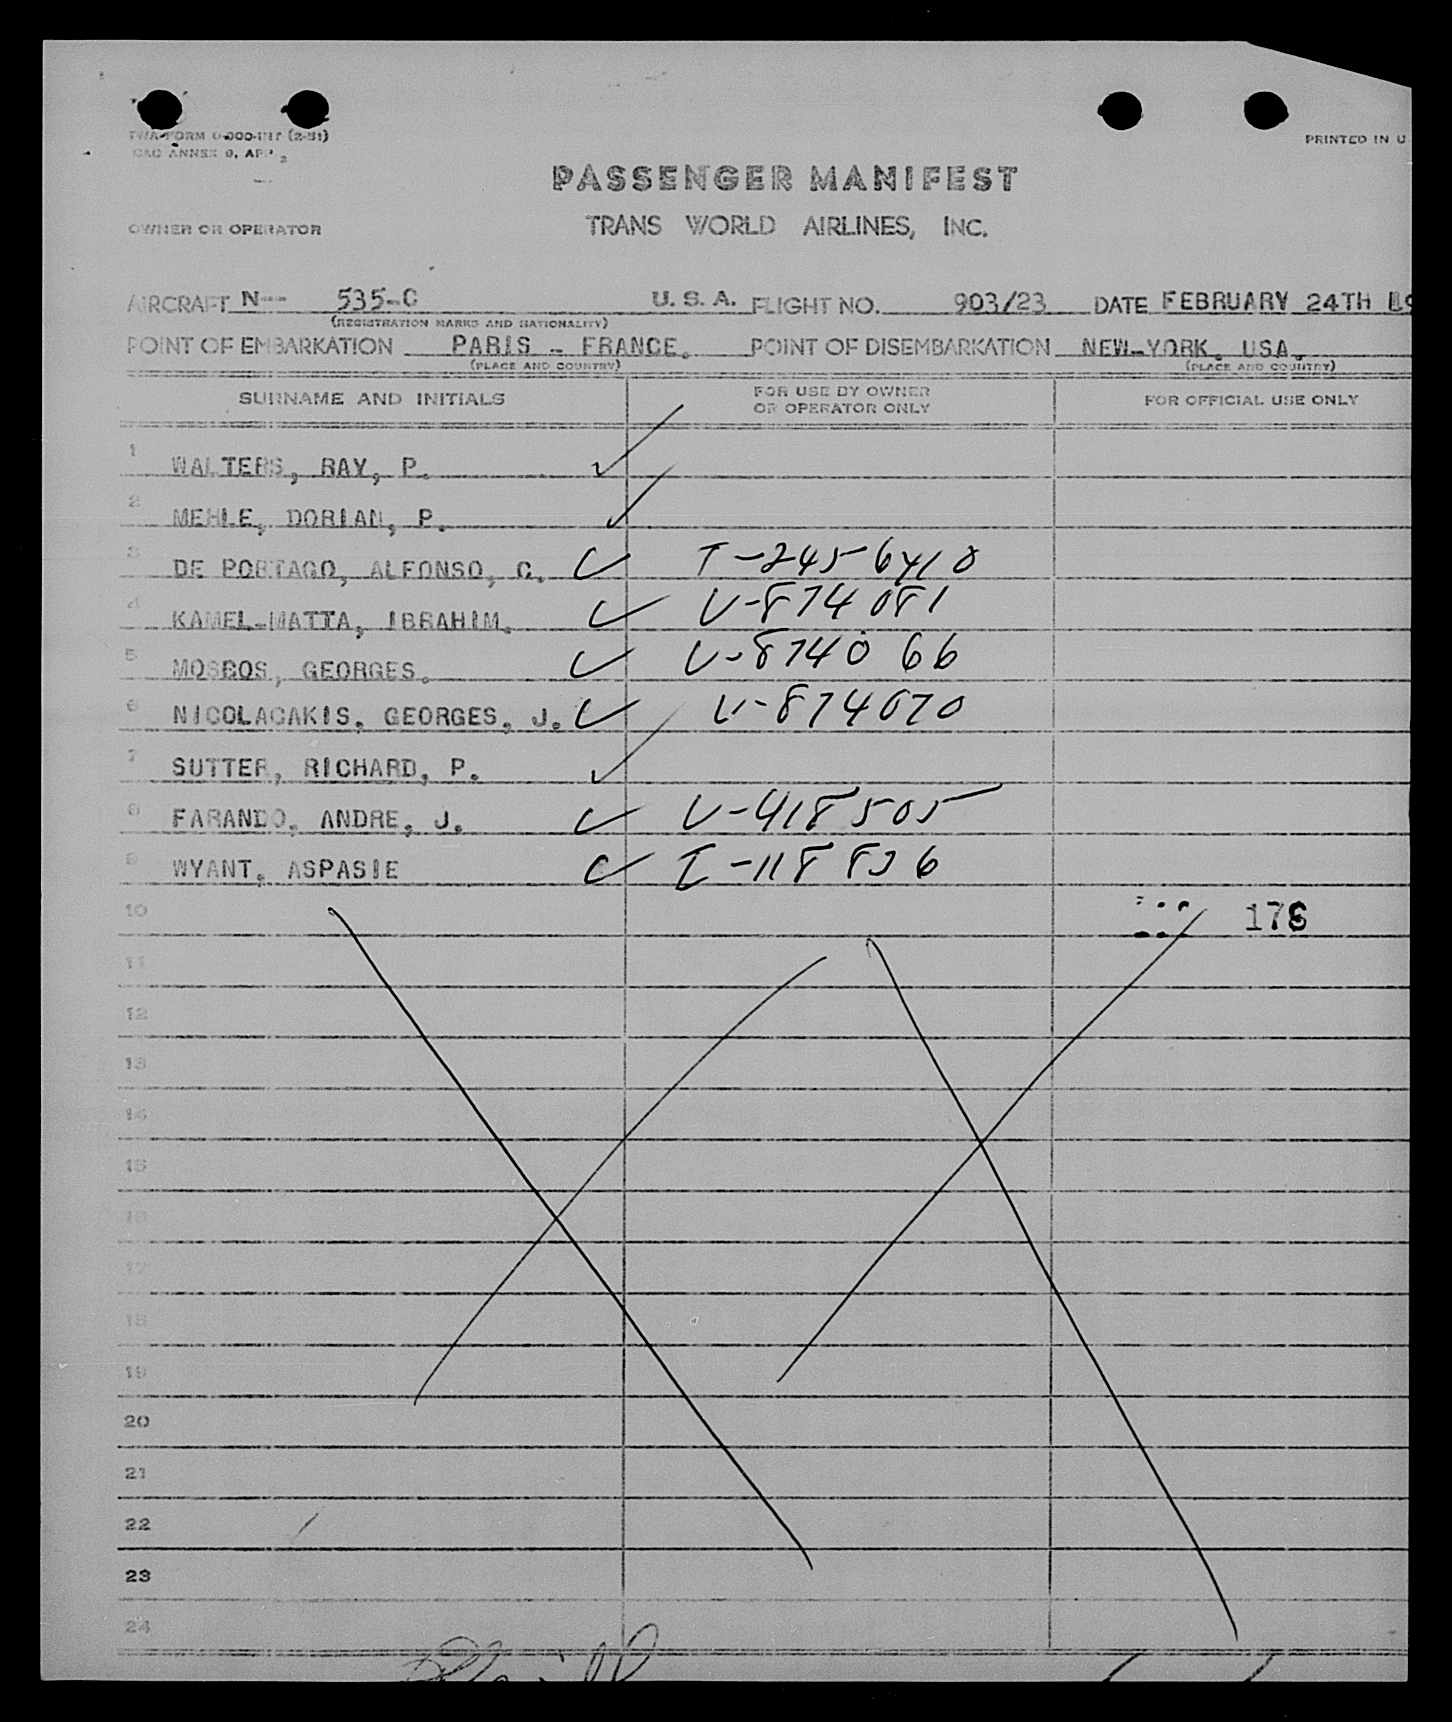 TWA FORM 0-000-117 (2-51)
ICAO ANNEX 9, APP 2
PRINTED IN U
PASSENGER MANIFEST
OWNER OR OPERATOR
TRANS WORLD AIRLINES, INC.
AIRCRAFT N-- 535-C U. S. A. FLIGHT NO. 903/23 DATE FEBRUARY 24TH 19
(REGISTRATION MARKS AND NATIONALITY)
POINT OF EMBARKATION PARIS - FRANCE. POINT OF DISEMBARKATION NEW-YORK. USA.
(PLACE AND COUNTRY) (PLACE AND COUNTRY)
SURNAME AND INITIALS FOR USE BY OWNER OR OPERATOR ONLY FOR OFFICIAL USE ONLY
1 WALTERS, RAY, P. ✓
2 MEHLE, DORIAN, P. ✓
3 DE PORTAGO, ALFONSO, C. ✓ T-245-6410
4 KAMEL-MATTA, IBRAHIM. ✓ V-874081
5 MOSBOS, GEORGES. ✓ V-874066
6 NICOLACAKIS, GEORGES, J. ✓ V-874070
7 SUTTER, RICHARD, P. ✓
8 FARANDO, ANDRE, J. ✓ V-418505
9 WYANT, ASPASIE ✓ I-118836
10 176
11
12
13
14
15
16
17
18
19
20
21
22
23
24